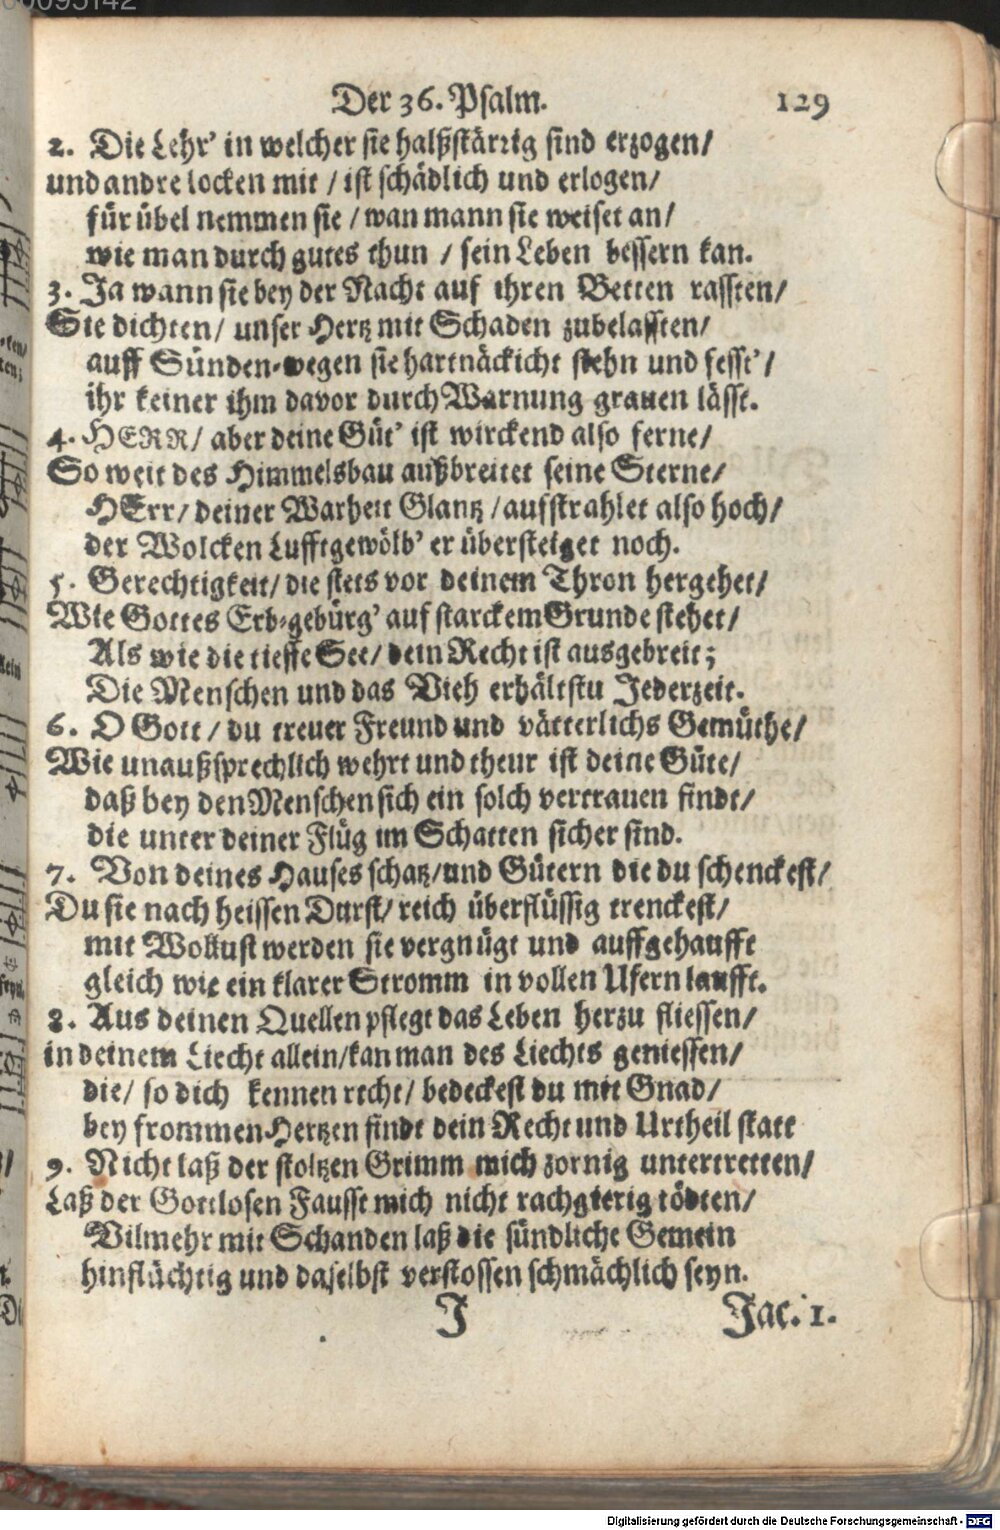 Der 36. Psalm. 129
2. Die Lehr' in welcher sie halßstärrig sind erzogen/
und andre locken mit / ist schädlich und erlogen/
für übel nemmen sie / wan mann sie weiset an/
wie man durch gutes thun / sein Leben bessern kan.
3. Ja wann sie bey der Nacht auf ihren Betten rassten/
Sie dichten/ unser Hertz mit Schaden zubelassten/
auff Sünden-wegen sie hartnäckicht stehn und fesst'/
ihr keiner ihm davor durch Warnung grauen lässt.
4. HERR/ aber deine Güt' ist wirckend also ferne/
So weit des Himmelsbau außbreitet seine Sterne/
HErr/ deiner Warheit Glantz /aufstrahlet also hoch/
der Wolcken Lufftgewölb' er übersteiget noch.
5. Gerechtigkeit/ die stets vor deinem Thron hergehet/
Wie Gottes Erb-gebürg' auf starckem Grunde stehet/
Als wie die tieffe See/ dein Recht ist ausgebreit;
Die Menschen und das Vieh erhältstu Jederzeit.
6. O Gott/ du treuer Freund und vätterlichs Gemüthe/
Wie unaußsprechlich wehrt und theur ist deine Güte/
daß bey den Menschen sich ein solch vertrauen findt/
die unter deiner Flüg im Schatten sicher sind.
7. Von deines Hauses schatz/und Gütern die du schenckest/
Du sie nach heissen Durst/ reich überflüssig trenckest/
mit Wollust werden sie vergnügt und auffgehaufft
gleich wie ein klarer Stromm in vollen Ufern laufft.
8. Aus deinen Quellen pflegt das Leben herzu fliessen/
in deinem Liecht allein/kan man des Liechts geniessen/
die/ so dich kennen recht/ bedeckest du mit Gnad/
bey frommen Hertzen findt dein Recht und Urtheil statt
9. Nicht laß der stoltzen Grimm mich zornig untertretten/
Laß der Gottlosen Fausst mich nicht rachgierig tödten/
Vilmehr mit Schanden laß die sündliche Gemein
hinflüchtig und daselbst verstossen schmächlich seyn.
J Jac. 1.
Digitalisierung gefördert durch die Deutsche Forschungsgemeinschaft - DFG